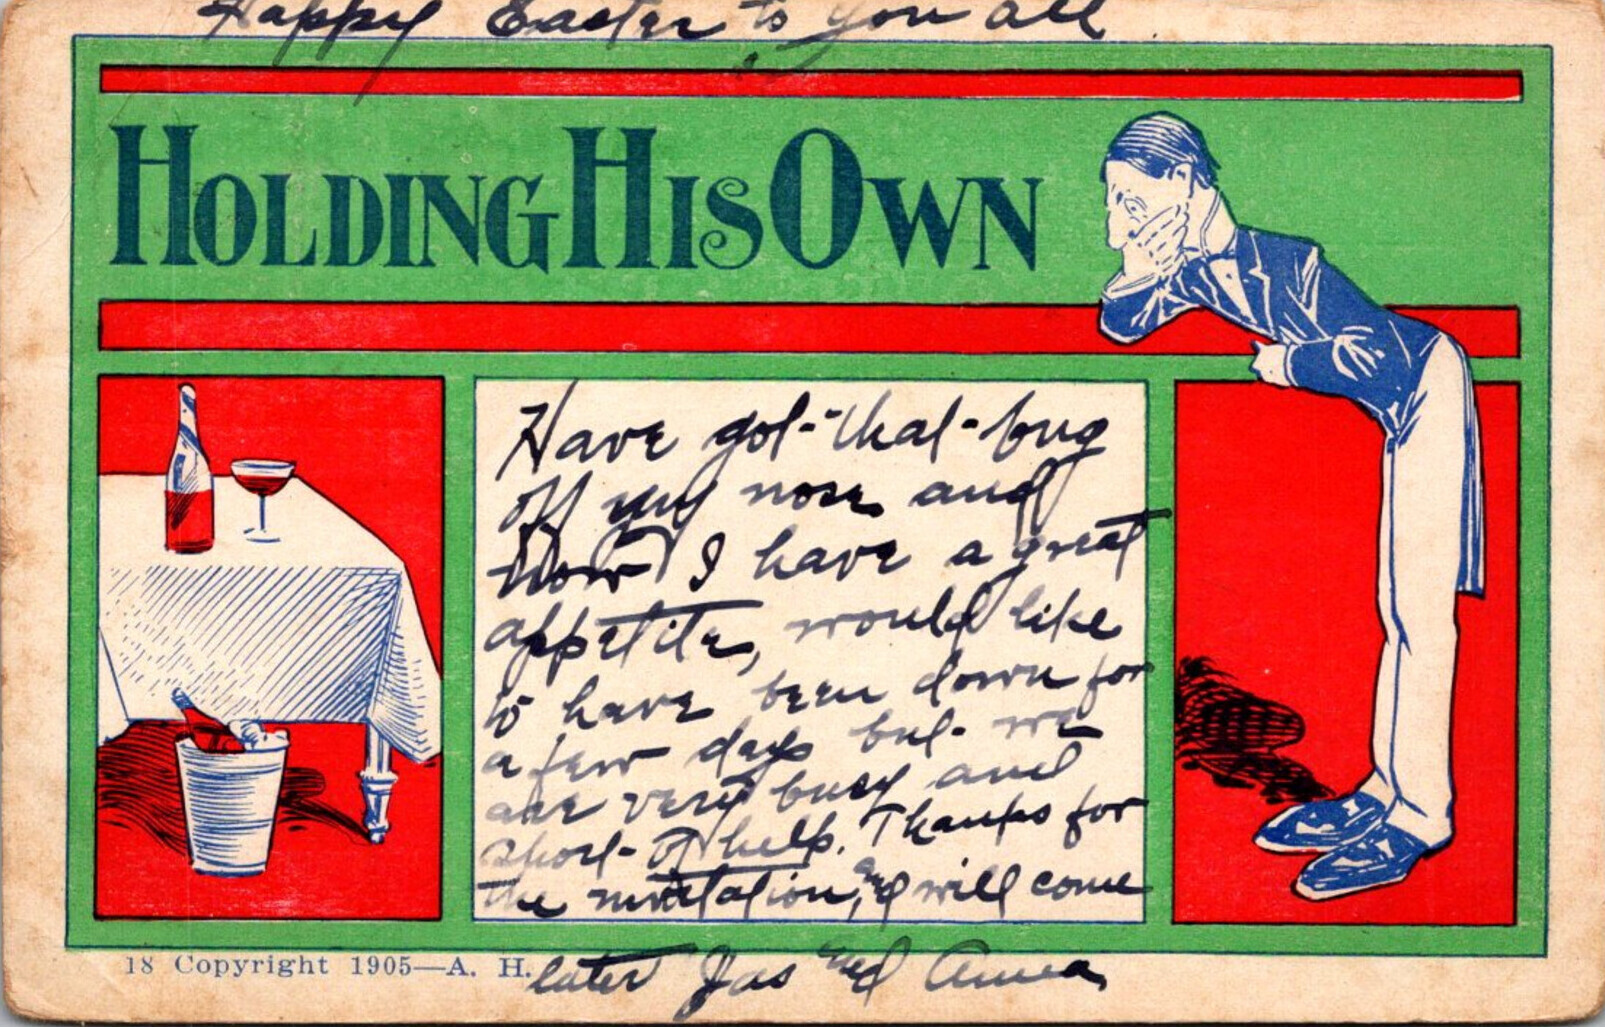 Happy Easter to you all
HOLDING HIS OWN
Have got-that-bug
off my nose and
Now I have a great
appetite, would like
to have been down for
a few days but- we
are very busy and
short- of help. Thanks for
the invitation, and will come
18 Copyright 1905—A. H.
later Jas and Anna